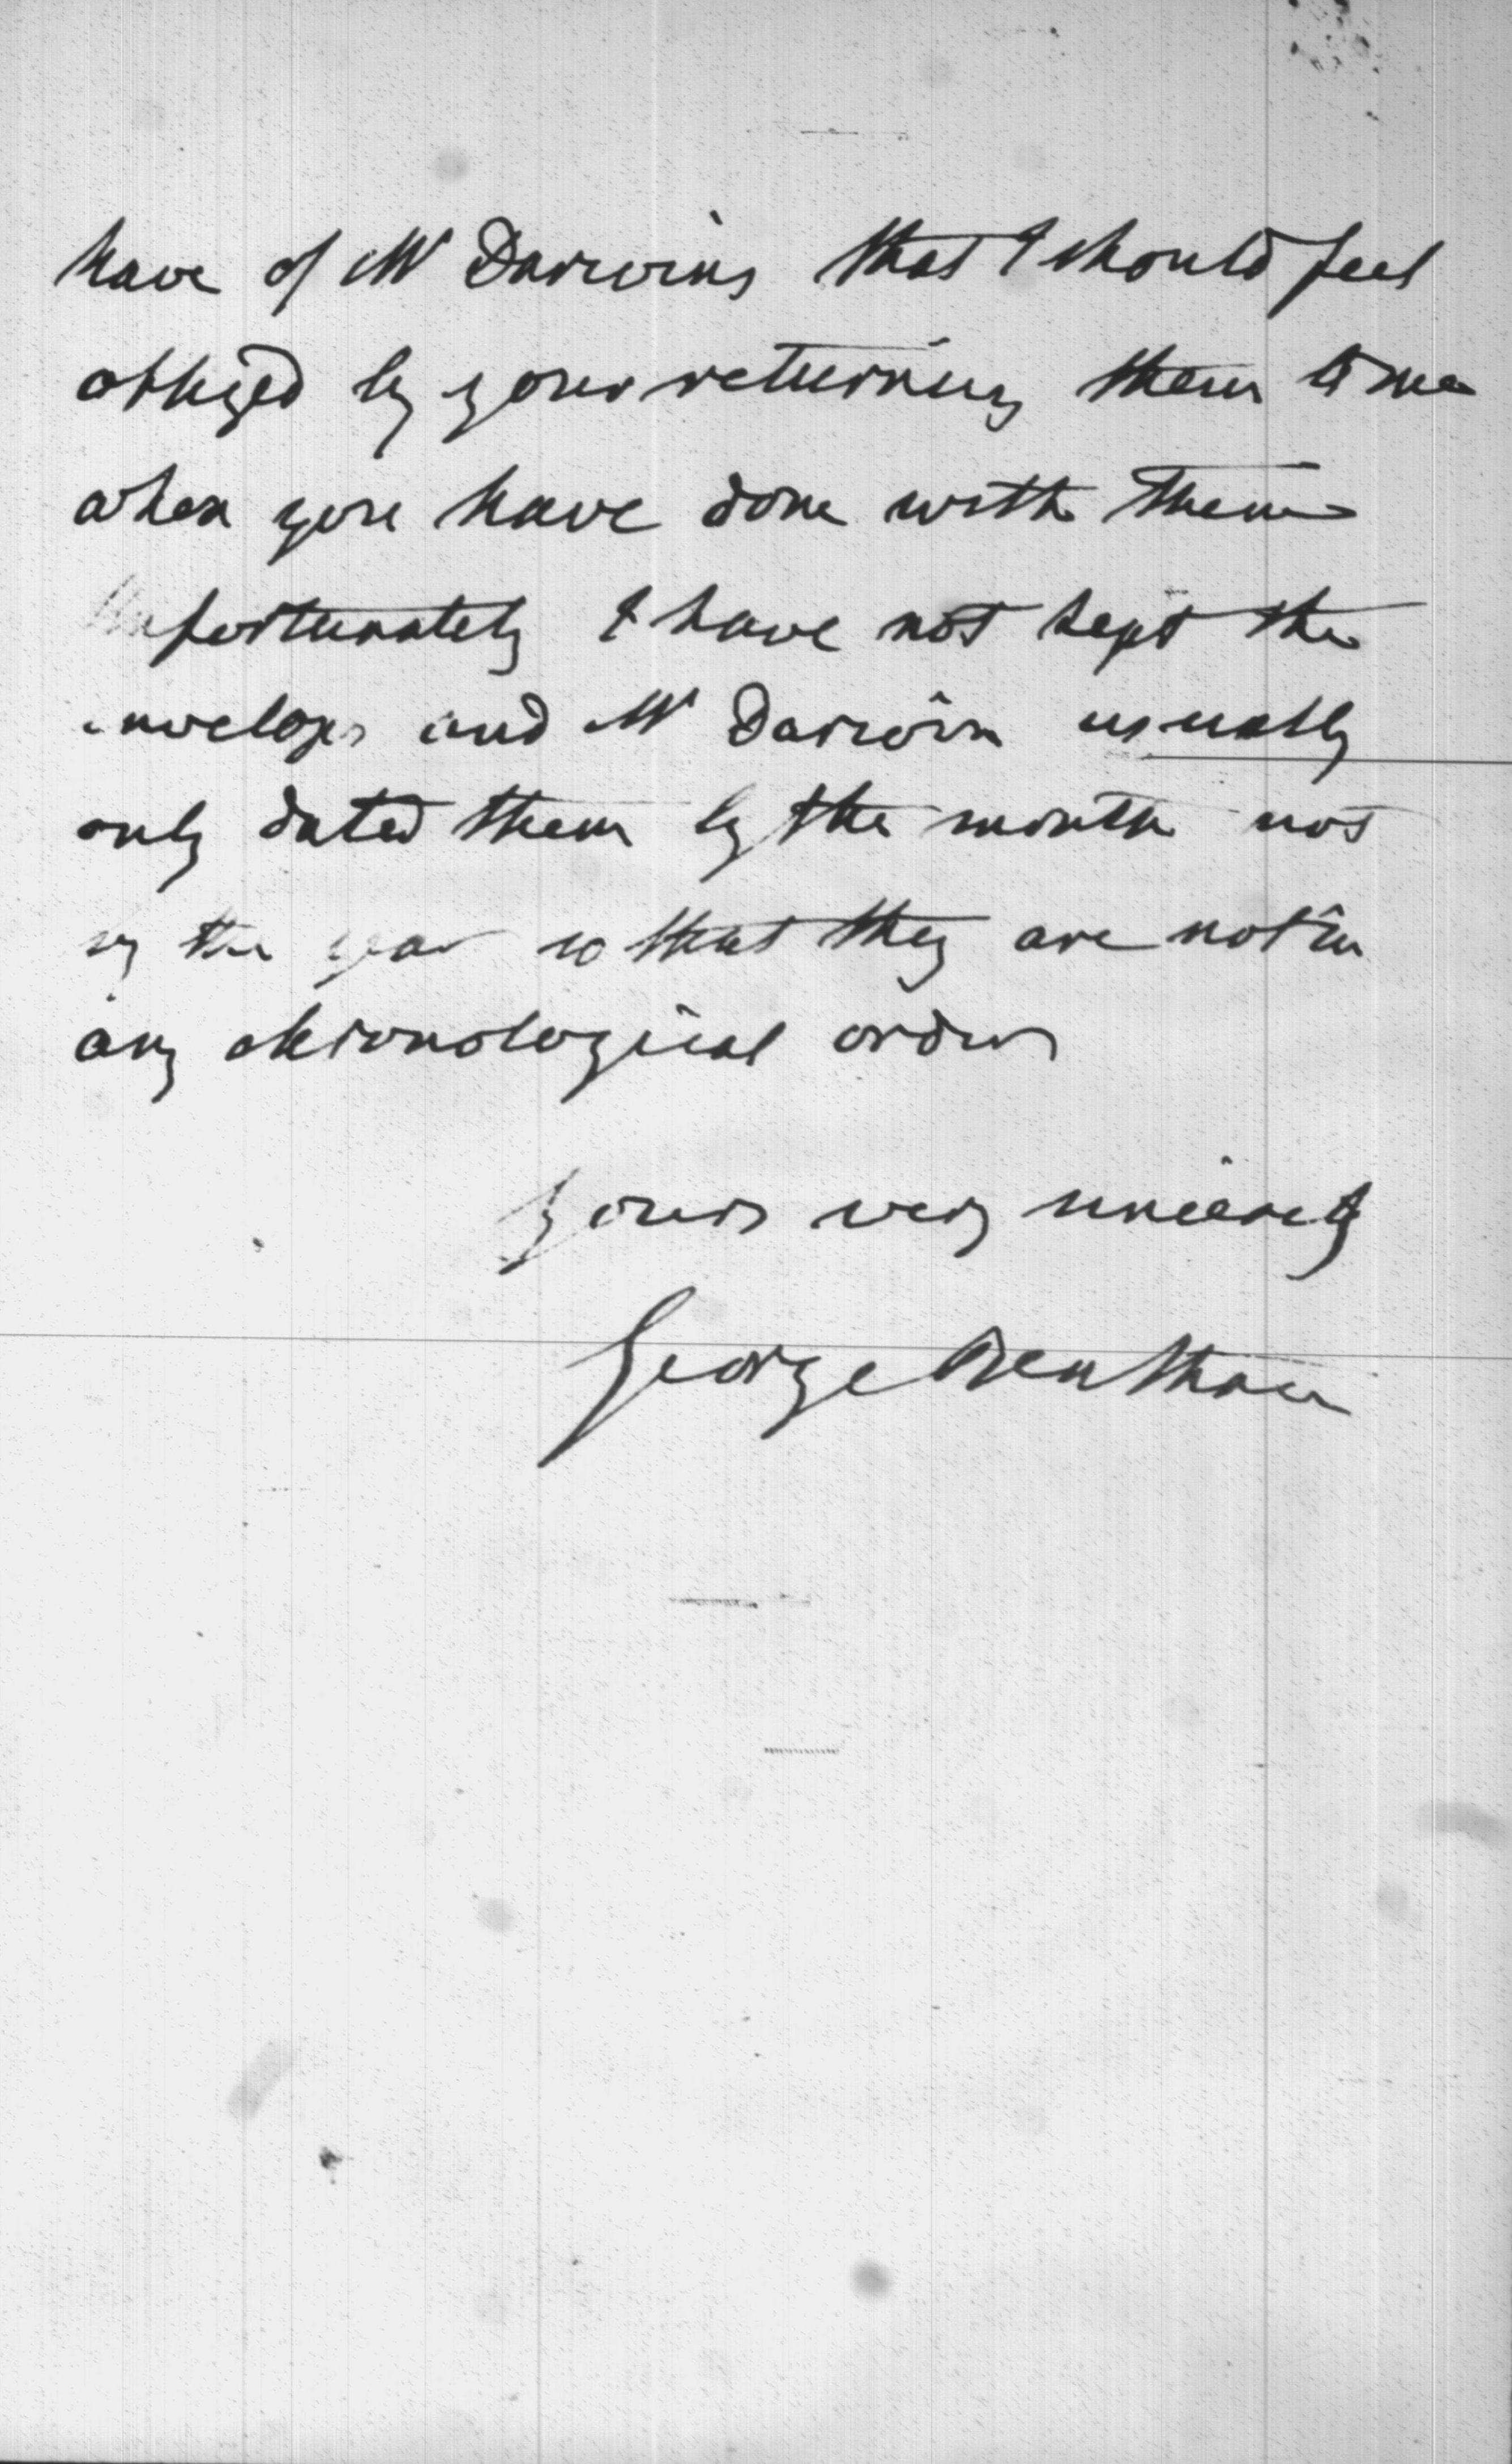 have of Mr Darwins that I should feel
obliged by your returning them to me
when you have done with them
Unfortunately I have not kept the
envelops and Mr Darwin usually
only dated them by the month not
by the year so that they are not in
any chronological order
Yours very sincerely
George Bentham